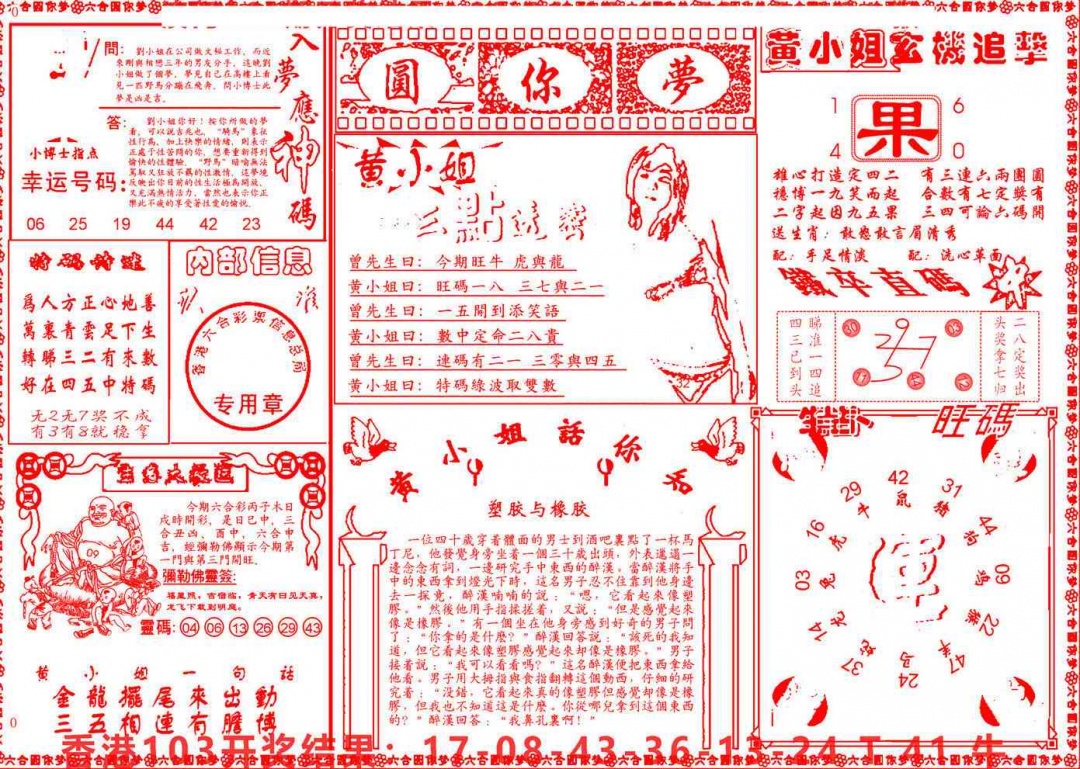 入夢應神碼
問：劉小姐在公司做文秘工作，而近
來剛與相戀三年的男友分手，這晚劉
小姐做了個夢，夢見自己在高樓上看
見一匹野馬分蹦在飛奔，問小博士此
夢是凶是吉。
答：劉小姐你好！按你所做的夢
看，可以說吉兆也，“騎馬”象征
性行爲，加上快樂的情緒，則表示
正處于性苦悶的你，想要重新得到
愉快的性體驗，“野馬”暗喻無法
駕馭又狂放不羈的性激情，這夢境
反映出你目前的性生活極爲開放，
又充滿熱情活力，當然也表示你正
樂此不疲的享受著性愛的愉悅。
小博士指点
幸运号码：
06 25 19 44 42 23
爲人方正心地善
萬裏青雲足下生
轉睇三二有來數
好在四五中特碼
无2无7奖不成
有3有8就稳拿
内部信息
香港六合彩票信息总局
专用章
今期六合彩丙子木日
戌時開彩，是日巳申，三
合丑凶、酉中，六合申
吉，經彌勒佛顯示今期第
一門與第三門開旺。
彌勒佛靈簽：
福星照，吉僧臨，青天有日见天真，
龙飞下载到明庭。
靈碼：04 06 13 26 29 43
黄小姐一句話
金龍擺尾來出動
三五相連有膽博
圓你夢
黄小姐
三點
曾先生曰：今期旺牛 虎與龍
黄小姐曰：旺碼一八 三七與二一
曾先生曰：一五開到添笑語
黄小姐曰：數中定命二八貴
曾先生曰：連碼有二一 三零與四五
黄小姐曰：特碼綠波取雙數
32
黄小姐話你香
塑胶与橡胶
一位四十歲穿着體面的男士到酒吧裏點了一杯馬
丁尼，他發覺身旁坐着一個三十歲出頭，外表邋遢一
邊念念有詞，一邊研究手中東西的醉漢。當醉漢將手
中的東西拿到燈光下時，這名男子忍不住靠到他身邊
去一探竟，醉漢喃喃的說：“嗯，它看起來像塑
膠。”然後他用手指揉搓着，又說：“但是感覺起來
像是橡膠。”有一個坐在他身旁感到好奇的男子問
了：“你拿的是什麽？”醉漢回答說：“該死的我知
道，但它看起來像塑膠感覺起來却像是橡膠。”男子
接着說：“我可以看看嗎？”這名醉漢便把東西拿給
他看。男子用大拇指與食指翻轉這個動西，仔細的研
究着：“沒錯，它看起來真的像塑膠但感覺却像是橡
膠，但我也不知道這是什麽。你從哪兒拿到這個東西
的？”醉漢回答：“我鼻孔裏啊！”
黄小姐玄機追擊
1 6
果
4 0
雄心打造定四二 有三連六兩團圓
穩博一九笑而起 合數有七定獎有
二字起因九五果 三四可論六碼開
送生肖：敢怒敢言眉清秀
配：手足情淡 配：洗心革面
鐵卒直碼
睇准一四追
四三已到头
二八定奖出
头奖拿七归
旺碼
42 鼠
31 猪
44 狗
09 鸡
22 猴
47 羊
24 马
37 蛇
14 龙
03 兔
16 虎
29 牛
香港103开奖结果：17-08-43-36-1
-24 T 41 牛